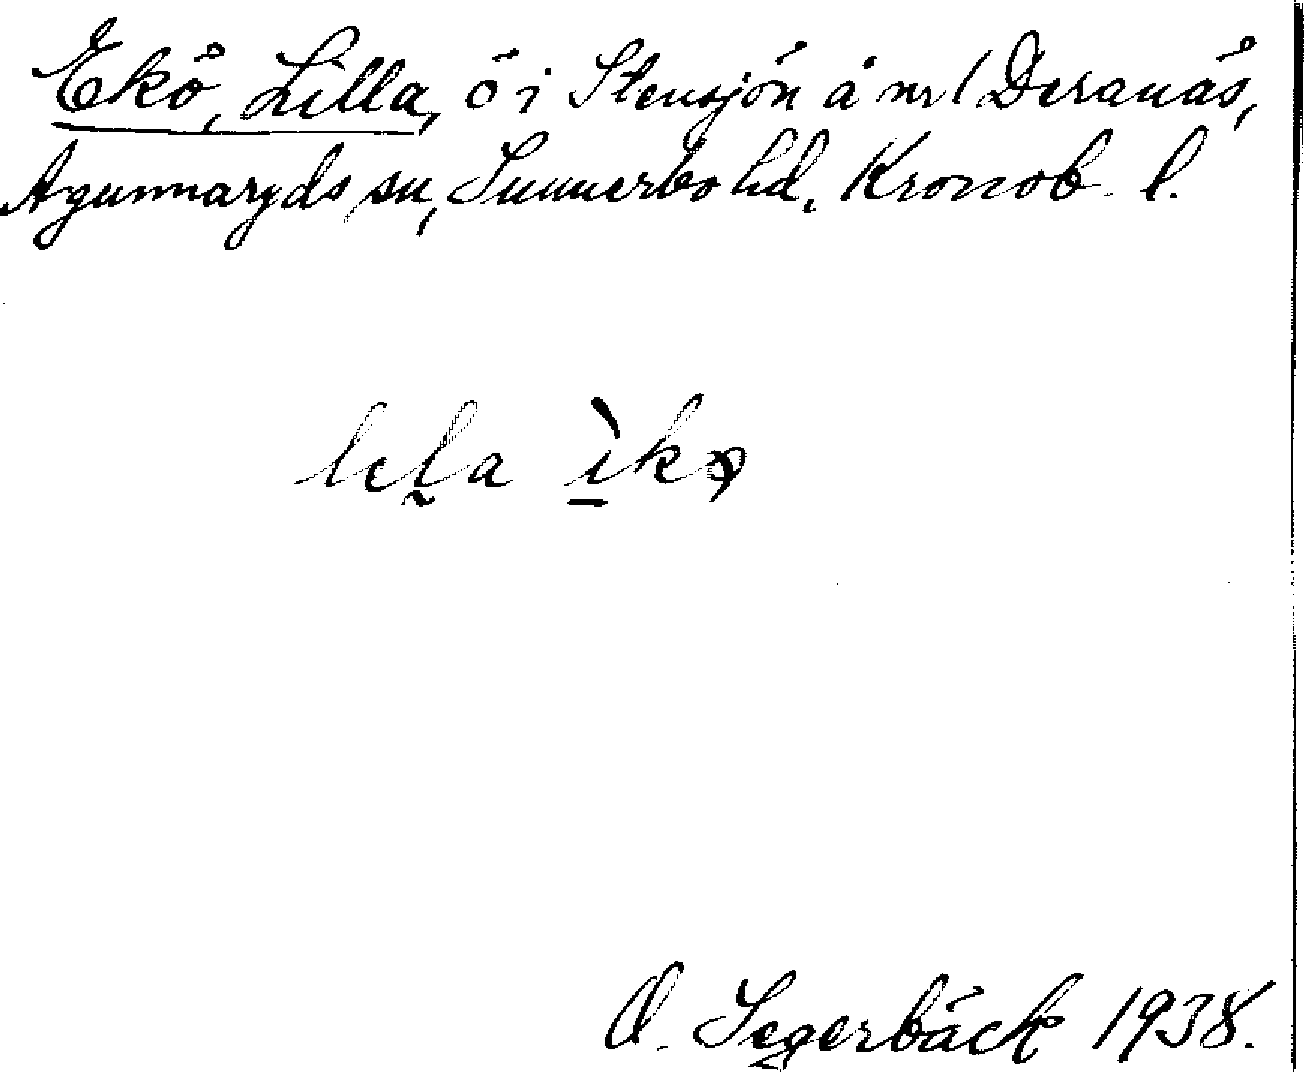 Ekö, Lilla, ö i Stensjön å nr 1 Deranäs,
Agunnaryds sn, Sunnerbo hd. Kronob. l.
lela ìkø
O. Segerbäck 1938.